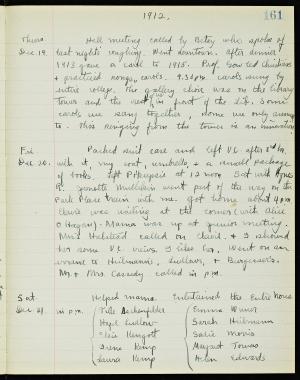 1912.
161
Thurs. Hall meeting called by Betty who spoke of
Dec. 19. last night's singing. Went downtown. After dinner
1913 gave a call to 1915. Prof. Gow led
+ practiced songs, carols. 9.30 p.m. carols sung by
entire college. The gallery choir was on the Library
Tower and the rest in front of the Lib. Some
carols we sang together, some we only
to. This singing from the tower is an innovation
Fri Packed suit case and left V.C. after 2nd hr.
Dec. 20. with it, my coat, umbrella + a small package
of books. Left P'keepsie at 12 noon. Sat with Agnes
R. Jeanette Mulliken went part of the way on the
Park Place train with me. Got home about 4 p.m.
Claire was waiting at the corner (with Alice
O'Hagan) - Mama was up at Junior meeting.
Mrs. Halsted called on Claire + I showed
her some V.C. views. I like her. Went on an
errand to Heilmann's, Ludlow's, + Burgesser's.
Mr. + Mrs. Cassedy called in p.m.
Sat. Helped mama. Entertained the Entre nous
Dec. 21. Hazel Ludlow Emma
Elsie Sarah Heilmann
Irene Kemp Sadie Morris
Laura Kemp Margaret Towns
Helen Edwards